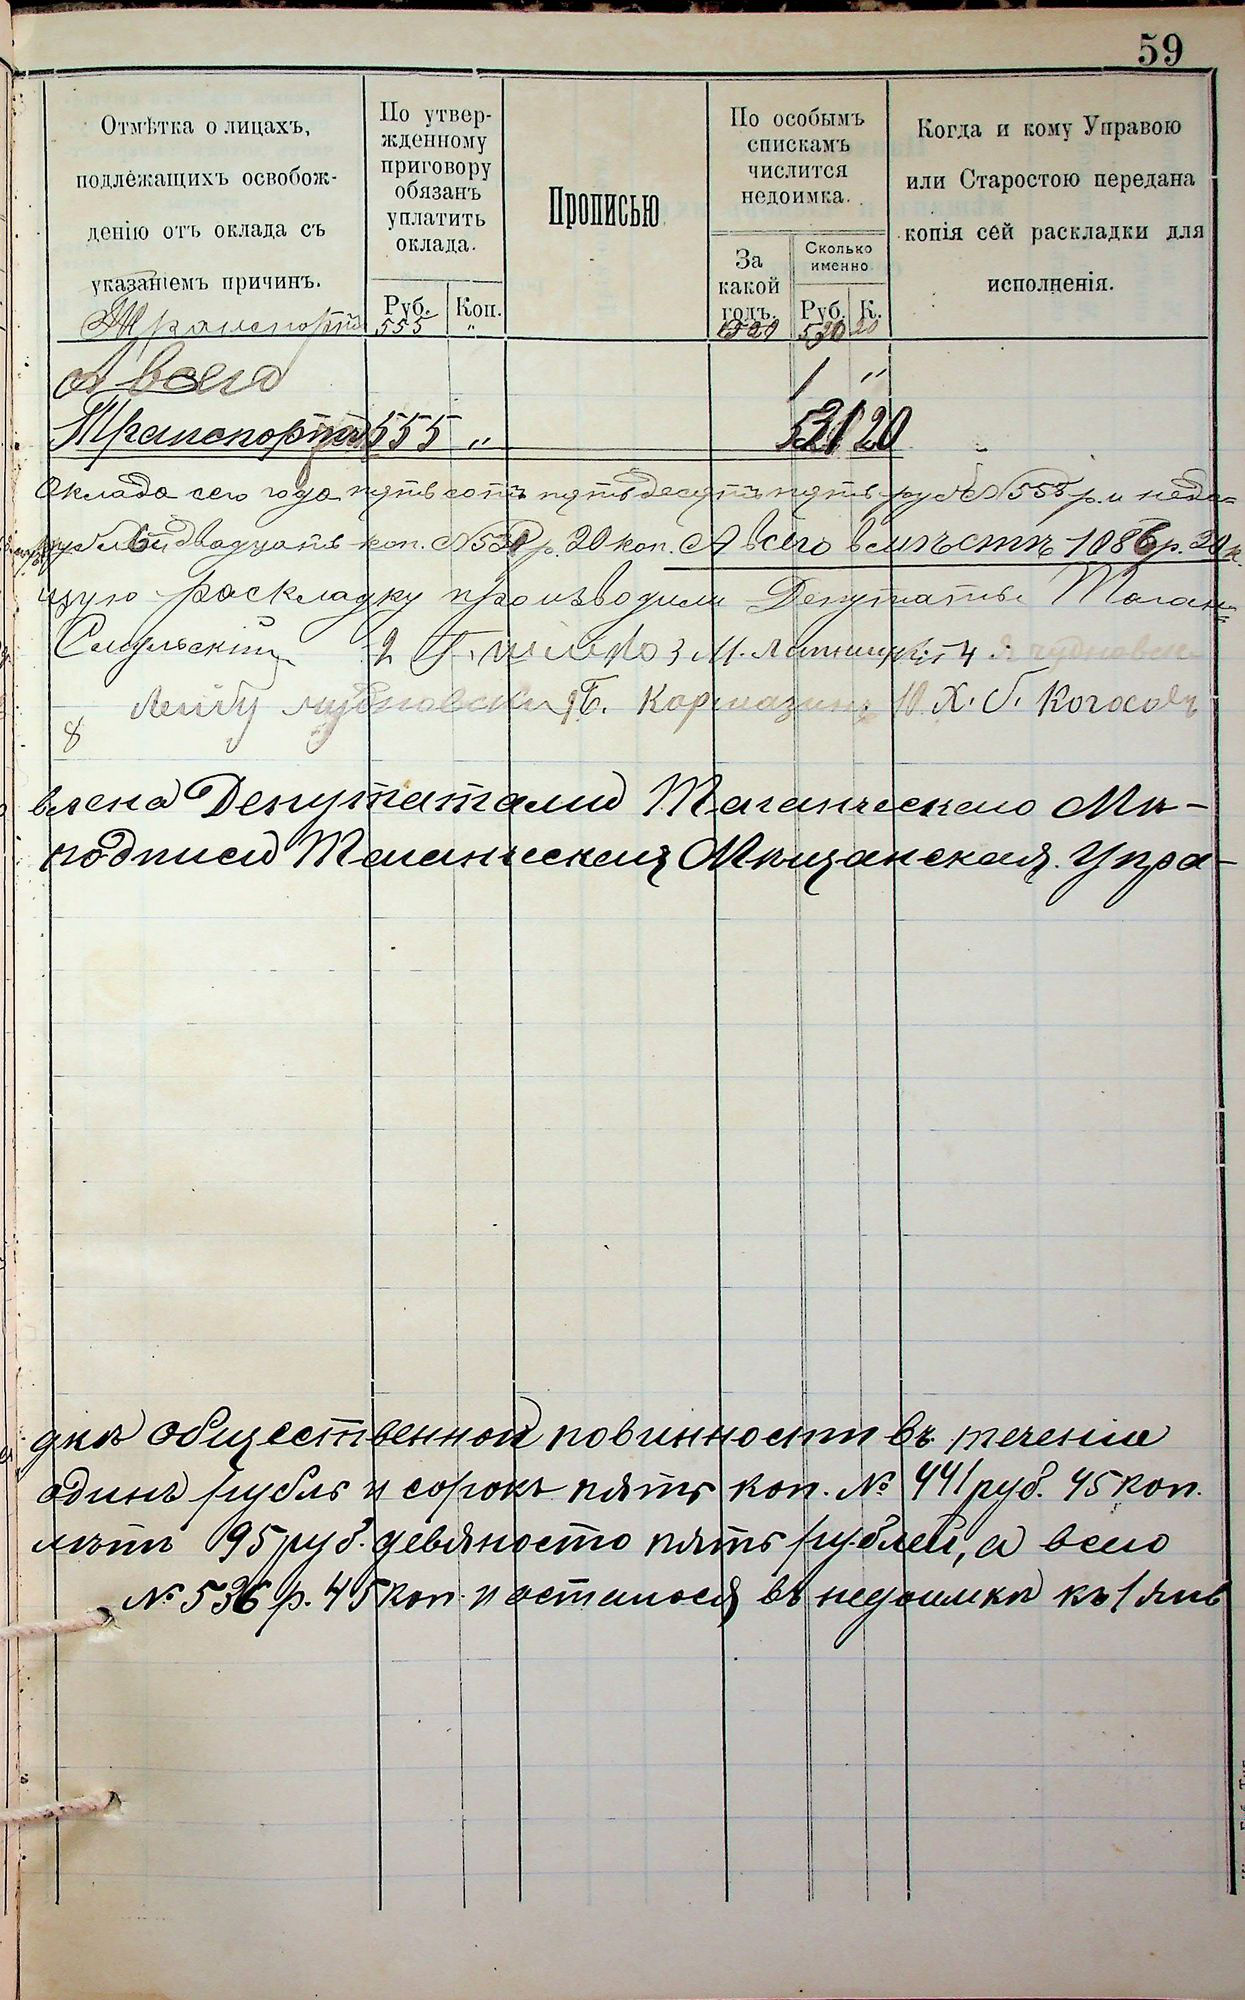 59
Отмѣтка о лицахъ,
подлежащихъ освобож-
денію отъ оклада съ
указаніемъ причинъ.
По утвер-
жденному
приговору
обязанъ
уплатить
оклада.
Руб. Коп.
Прописью
По особымъ
спискамъ
числится
недоимка.
За
какой
годъ.
Сколько
именно
Руб. К.
Когда и кому Управою
или Старостою передана
копія сей раскладки для
исполненія.
Транспортъ 555 " 530 20
а всего 1 "
Транспортъ 555 " 531 20
Оклада сего года пятьсотъ пятьдесятъ пять руб. № 555 р. и недо=
рублей двадцать коп. № 531 р. 20 коп. А всего вмѣстѣ 1086 р. 20 к.
щую раскладку производили Депутаты Таган=
2 3 М. 4 Я Чудновск
Лейбу Чудновски 9 Б. Кормазинъ 10 Х. Б. Когосовъ
8
влена Депутатами Таганческаго Мѣ-
подписи Таганческая Мѣщанская Упра-
дкѣ общественной повинности въ теченіи
одинъ рубль и сорокъ пять коп. № 441 руб. 45 коп.
лѣтъ 95 руб. девяносто пять рублей, а всего
№ 536 р. 45 коп. и осталося въ недоимкѣ къ 1 янв